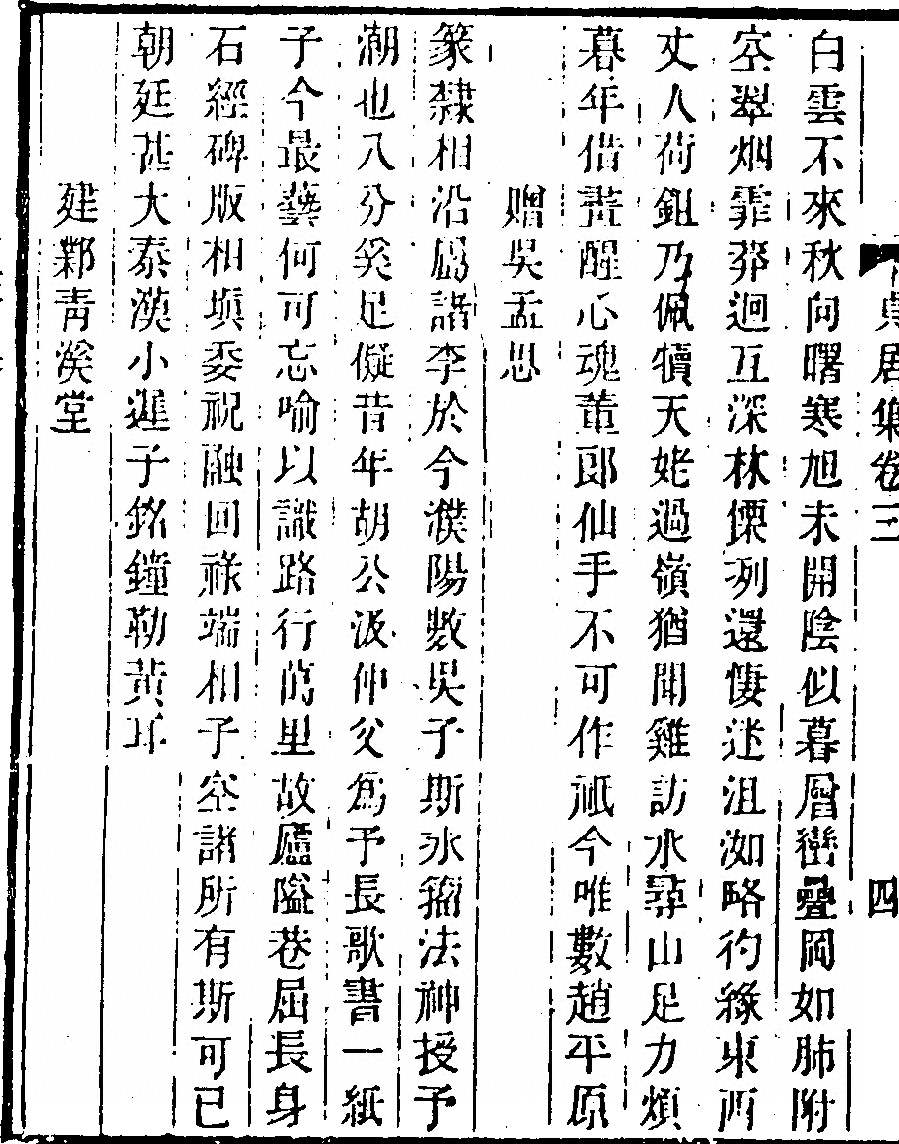 貞居集卷三 四
白雲不來秋向曙寒旭未開陰似暮層巒疊岡如肺附
空翠烟霏莽迴互深林慄冽還悽迷沮洳略彴緣東西
丈人荷鉏乃佩犢天姥過嶺猶聞雞訪水尋山足力煩
暮年借畫醒心魂董郎仙手不可作祇今唯數趙平原
贈吳孟思
篆隸相沿屬諸李於今濮陽數吳子斯氷籀法神授予
潮也八分奚足儗昔年胡公汲仲父爲予長歌書一紙
子今最藝何可忘喻以識路行萬里故廬隘巷屈長身
石經碑版相塡委祝融回祿端相子空諸所有斯可已
朝廷甚大秦漢小遲子銘鐘勒黃耳
建鄴青溪堂